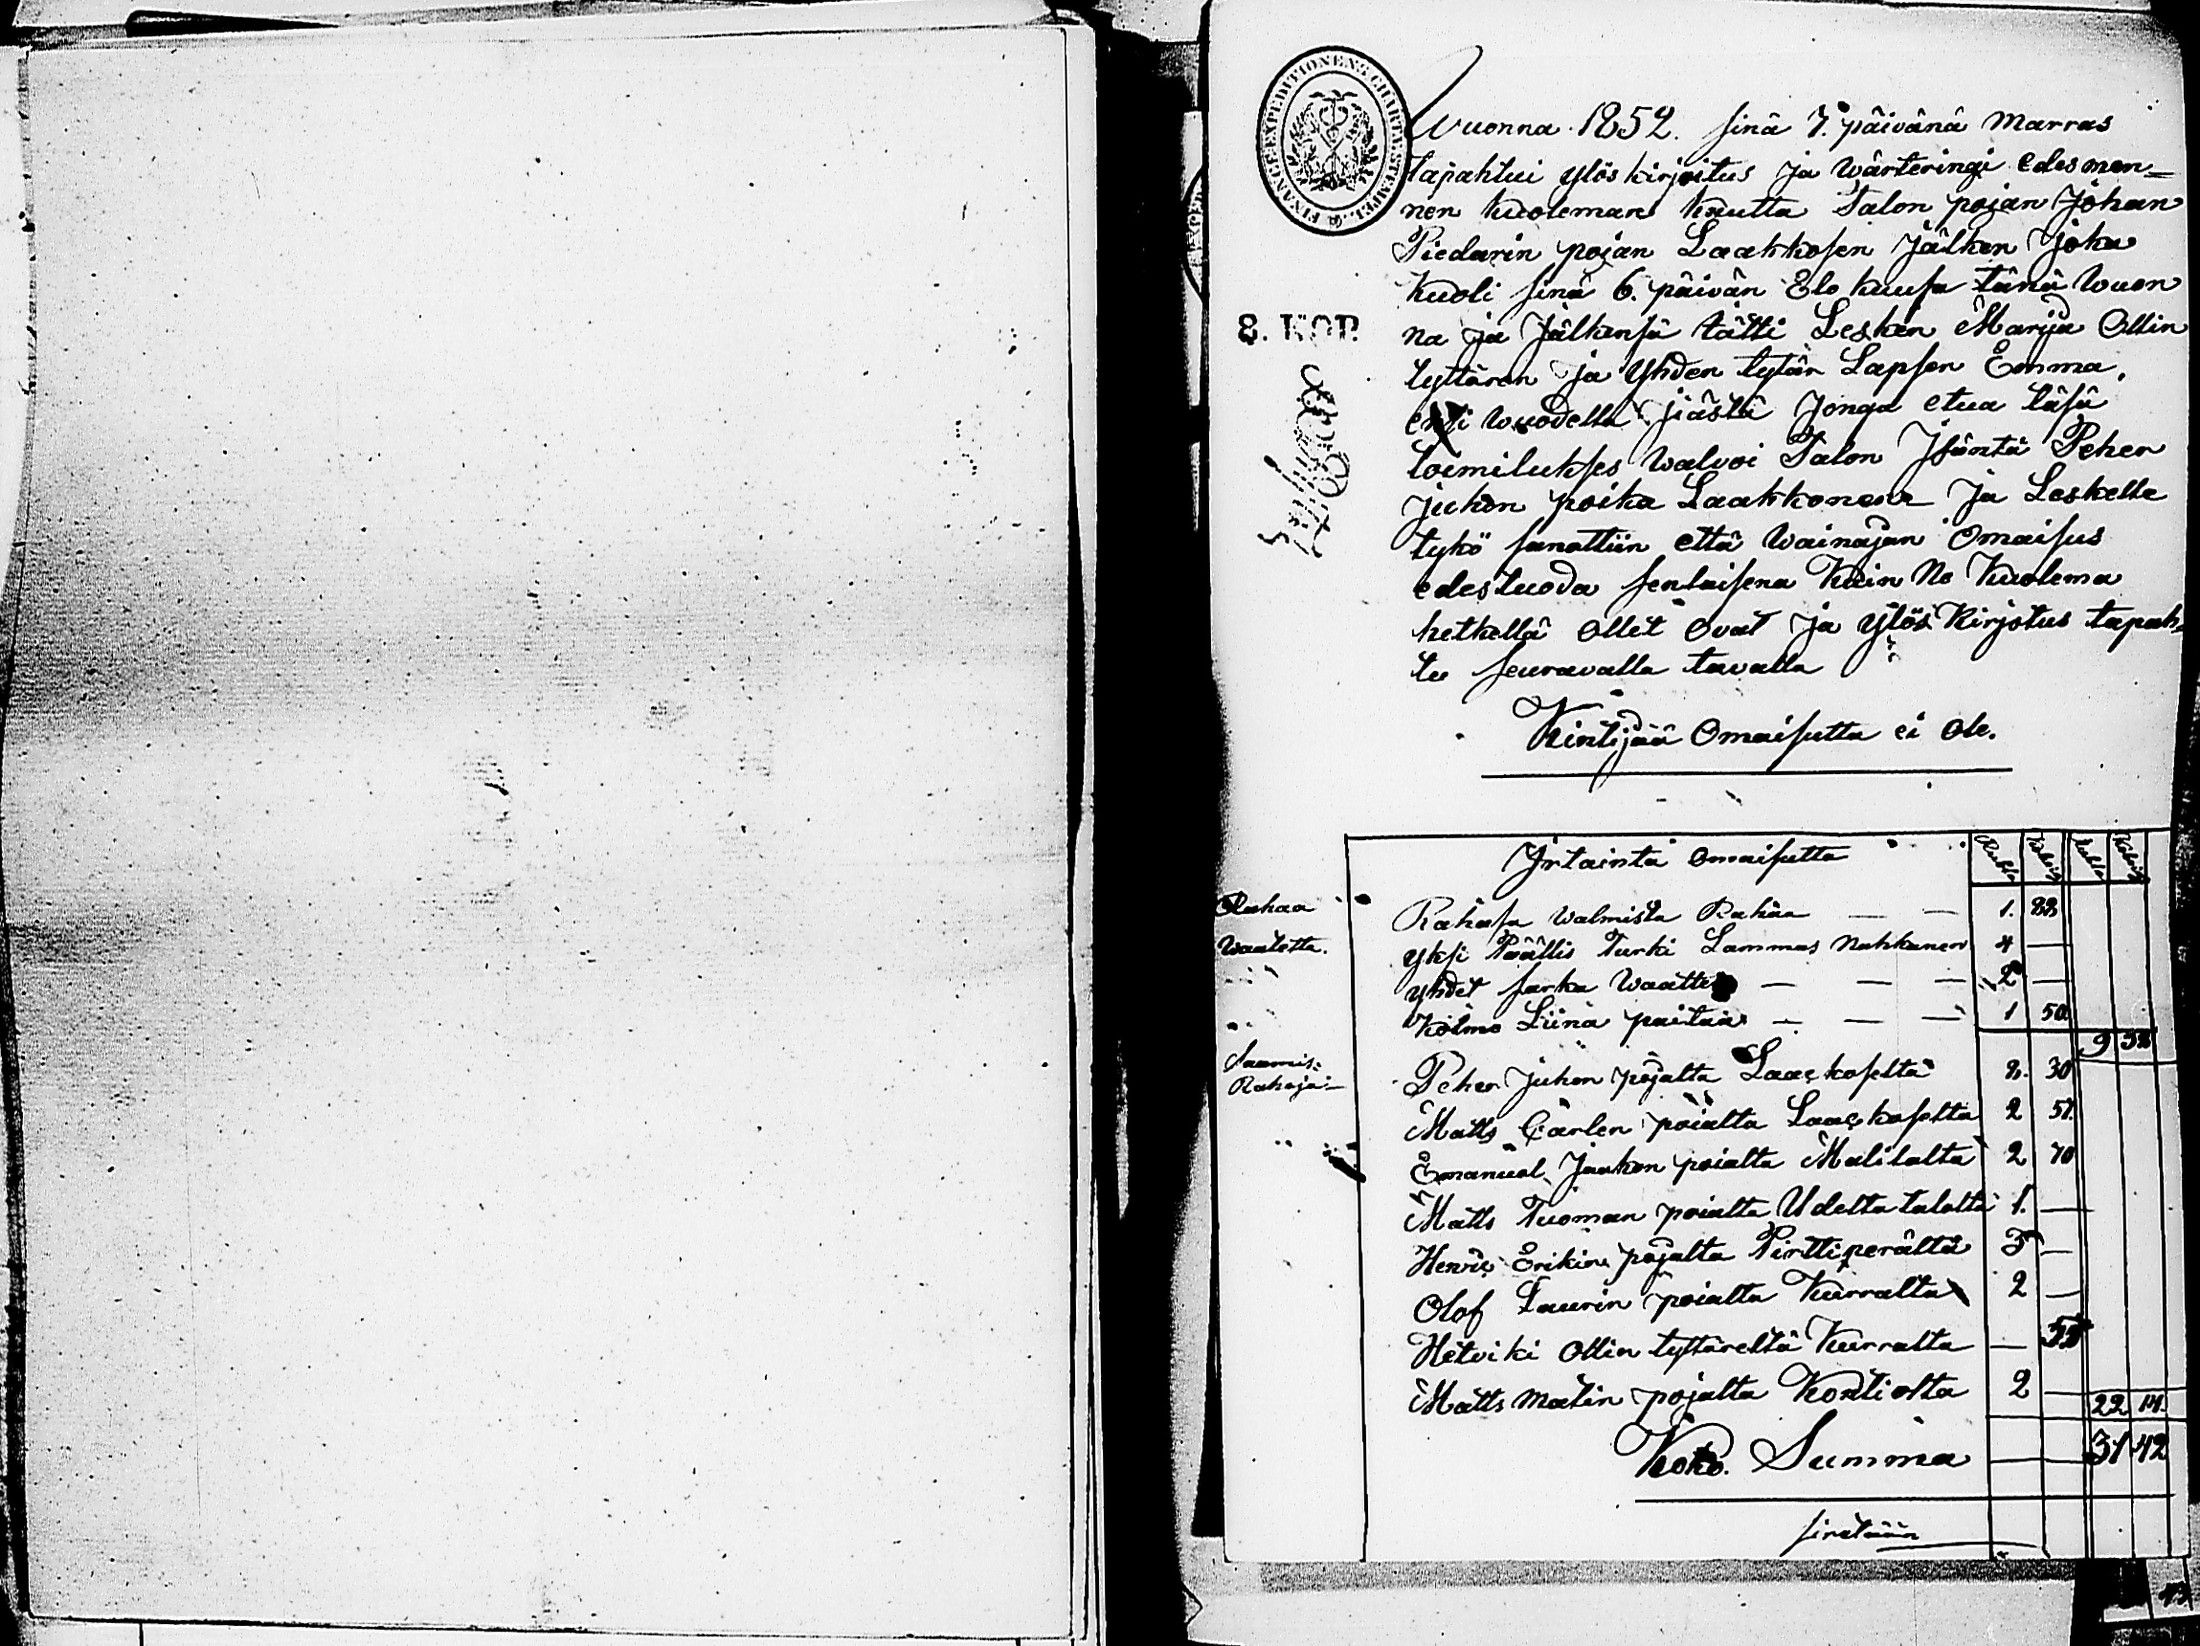 FINANCE EXPEDITIONENS CHARTÆ STEMPEL.
8. KOP.
Wuonna 1852. sinä 7. päivänä Marras
tapahtui ylös kirjoitus ja Wärteringi edesmen=
nen kuoleman kautta Talon pojan Johan
Piedarin pojan Laakkosen Jälken Joka
kuoli sinä 6. päivän Elo kuusa tänä Wuon
na ja Jälkensä tätti Lesken Marija Ollin
tyttären ja Yhden tytär Lapsen Emma,
wuodella jiästä Jonga etua täsä
toimiluksses walvoi Talon Jsäntä Peher
Juhon poika Laakkonen Ja Leskelle
tykö sanottiin että Wainajan Omaisus
edestuoda senlaisena Kuin Ne Kuolema
hetkellä Ollet Ovat Ja Ylös Kirjotus tapah,
tu seuravalla tavalla
Kintijää Omaisutta ei Ole.
Jrtainta Omaisutta Rubla Kobeik Rubla Kobeik
Rahaa Rahasa Walmista Rahaa — — 1. 88
Waatetta. Yksi Päällis Turki Lammas Nahkanen 4 —
yhdet sarka Waattet — — — 2 —
Kolme Liina paitaa — — — 1 50
9 38
Saamis: Rahoja:
Peher Juhon pojalta Laackoselta 8. 30
Matts Carlen poialta Laackoselta 2 57.
Emanuel Jaakon poialta Malilalta 2 70
Matts Tuoman poialta Udelta talolta 1. —
Henric Erikin pojalta Pirttiperältä 3 —
Olof Laurin poialta Kurralta 2 —
Hetviki Ollin tyttäreltä Kurralta —
Matts Matin pojalta Kontiolta 2 —
22 14.
Koko. Summa — — 31 42
siretään